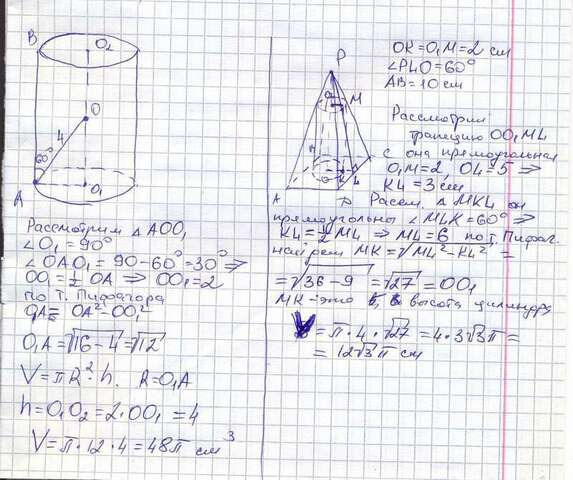 B
O₂
O
4
60°
A
O₁
Рассмотрим △ AOO₁
∠O₁ = 90°
∠OAO₁ = 90-60=30° ⇒
OO₁ = ½ OA ⇒ OO₁=2
по т. Пифагора
OA² - OO₁²
O₁A = √16-4 = √12
V=πR²·h. R=O₁A
h=O₁O₂=2·OO₁=4
V=π·12·4=48π см³
P
M
K
A
OK=O₁M=2 см
∠PLO=60°
AB=10см
Рассмотрим
трапецию OO₁ML
она прямоугольная
O₁M=2, OL=5 ⇒
KL=3см
Рассм. △ MKL он
прямоугольны ∠MLK=60° ⇒
KL=½ML ⇒ ML=6 по т. Пифаг.
найдем MK=√ML²-KL² =
=√36-9 = √27 = OO₁
MK-это высота цилиндра
V=π·4·√27=4·3√3π=
=12√3π см